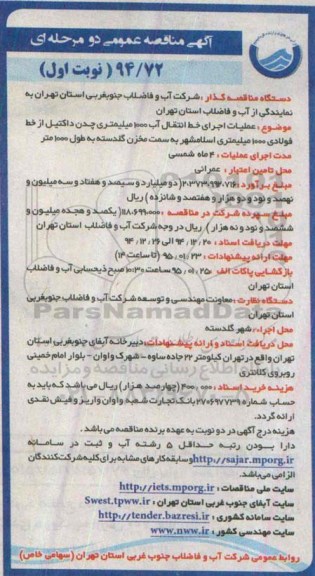 آگهی مناقصه عمومی دو مرحله ای
۹۴/۷۲ ( نوبت اول )
دستگاه مناقصه گذار : شرکت آب و فاضلاب جنوبغربی استان تهران به
نمایندگی از آب و فاضلاب استان تهران
موضوع : عملیات اجرای خط انتقال آب ۱۰۰۰ میلیمتری چدن داکتیل از خط
فولادی ۱۰۰۰ میلیمتری اسلامشهر به سمت مخزن گلدسته به طول ۱۰۰۰ متر
مدت اجرای عملیات : ۴ ماه شمسی
محل تامین اعتبار : عمرانی
مبلغ برآورد : ۲،۳۷۳،۹۹۲،۷۱۶ ( دو میلیارد و سیصد و هفتاد و سه میلیون و
نهصد و نود و دو هزار و هفتصد و شانزده ) ریال
مبلغ سپرده شرکت در مناقصه : ۱۱۸،۶۹۹،۰۰۰ ( یکصد و هجده میلیون و
ششصد و نود و نه هزار ) ریال در وجه شرکت آب و فاضلاب استان تهران
مهلت دریافت اسناد : ۲۰ / ۱۲ / ۹۴ الی ۲۶ / ۱۲ / ۹۴
مهلت ارائه پیشنهادات : ۲۳ / ۰۱ / ۹۵ ( تا ساعت ۱۴)
بازگشایی پاکات الف : ۲۵ / ۰۱ / ۹۵ ساعت ۱۰:۳۰ صبح ذیحسابی آب و فاضلاب
استان تهران
دستگاه نظارت : معاونت مهندسی و توسعه شرکت آب و فاضلاب جنوبغربی
استان تهران
محل اجراء : شهر گلدسته
محل دریافت اسناد و ارائه پیشنهادات : دبیرخانه آبفای جنوبغربی استان
تهران واقع در تهران کیلومتر ۲۲ جاده ساوه - شهرک واوان - بلوار امام خمینی
روبروی کلانتری
هزینه خرید اسناد : ۴۰۰،۰۰۰ (چهارصد هزار) ریال می باشد که باید به
حساب شماره بانک تجارت شعبه واوان واریز و فیش نقدی
ارائه گردد.
هزینه درج آگهی در دو نوبت به عهده برنده مناقصه می باشد.
دارا بودن رتبه حداقل ۵ رشته آب و ثبت در سامانه
http://sajar.mporg.ir و سابقه کارهای مشابه برای کلیه شرکت کنندگان
الزامی می باشد.
سایت ملی مناقصات : http://iets.mporg.ir
سایت آبفای جنوب غربی استان تهران : Swest.tpww.ir
سایت سامانه کشوری : http://tender.bazresi.ir
سایت مهندسی کشور : www.nww.ir
روابط عمومی شرکت آب و فاضلاب جنوب غربی استان تهران (سهامی خاص)